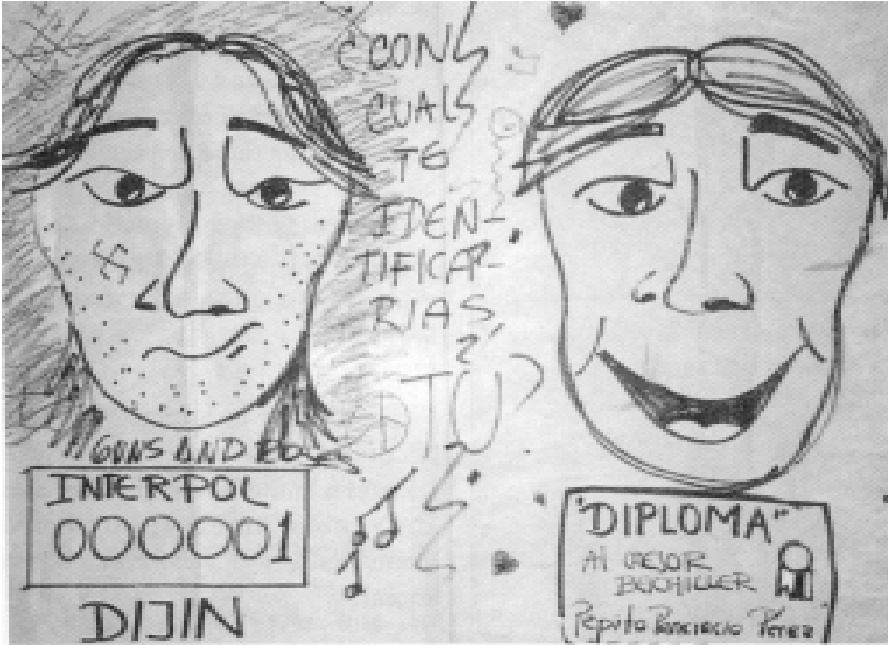 ¿CON
CUAL
TE
IDEN-
TIFICA-
RIAS
TU?
GUNS AND
INTERPOL
000001
DIJIN
"DIPLOMA"
Al MEJOR
BACHILLER
Pepito Pérez